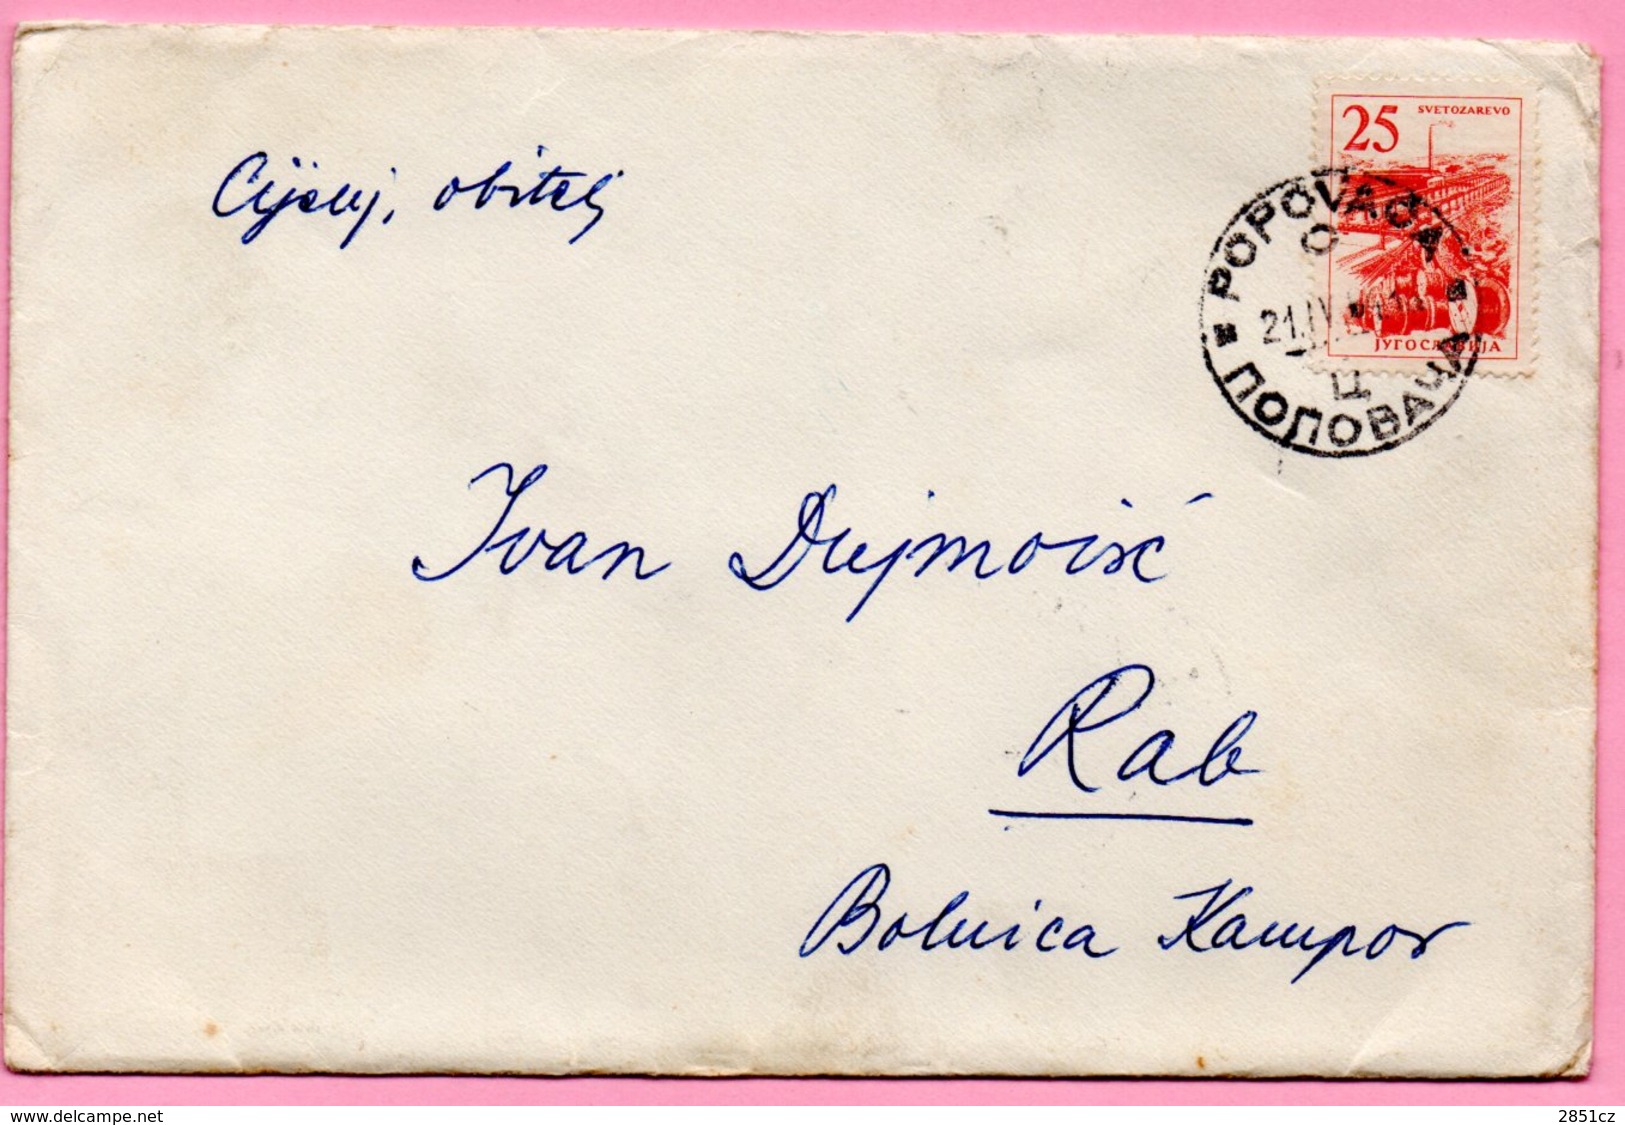 Cijenj. obitelj
25
SVETOZAREVO
ЈУГОСЛАВИЈА
POPOVAČA
21.IV.
Ц
ПОПОВАЧА
Ivan Dujmoisć
Rab
Bolnica Kampor
delcampe.net
2851cz